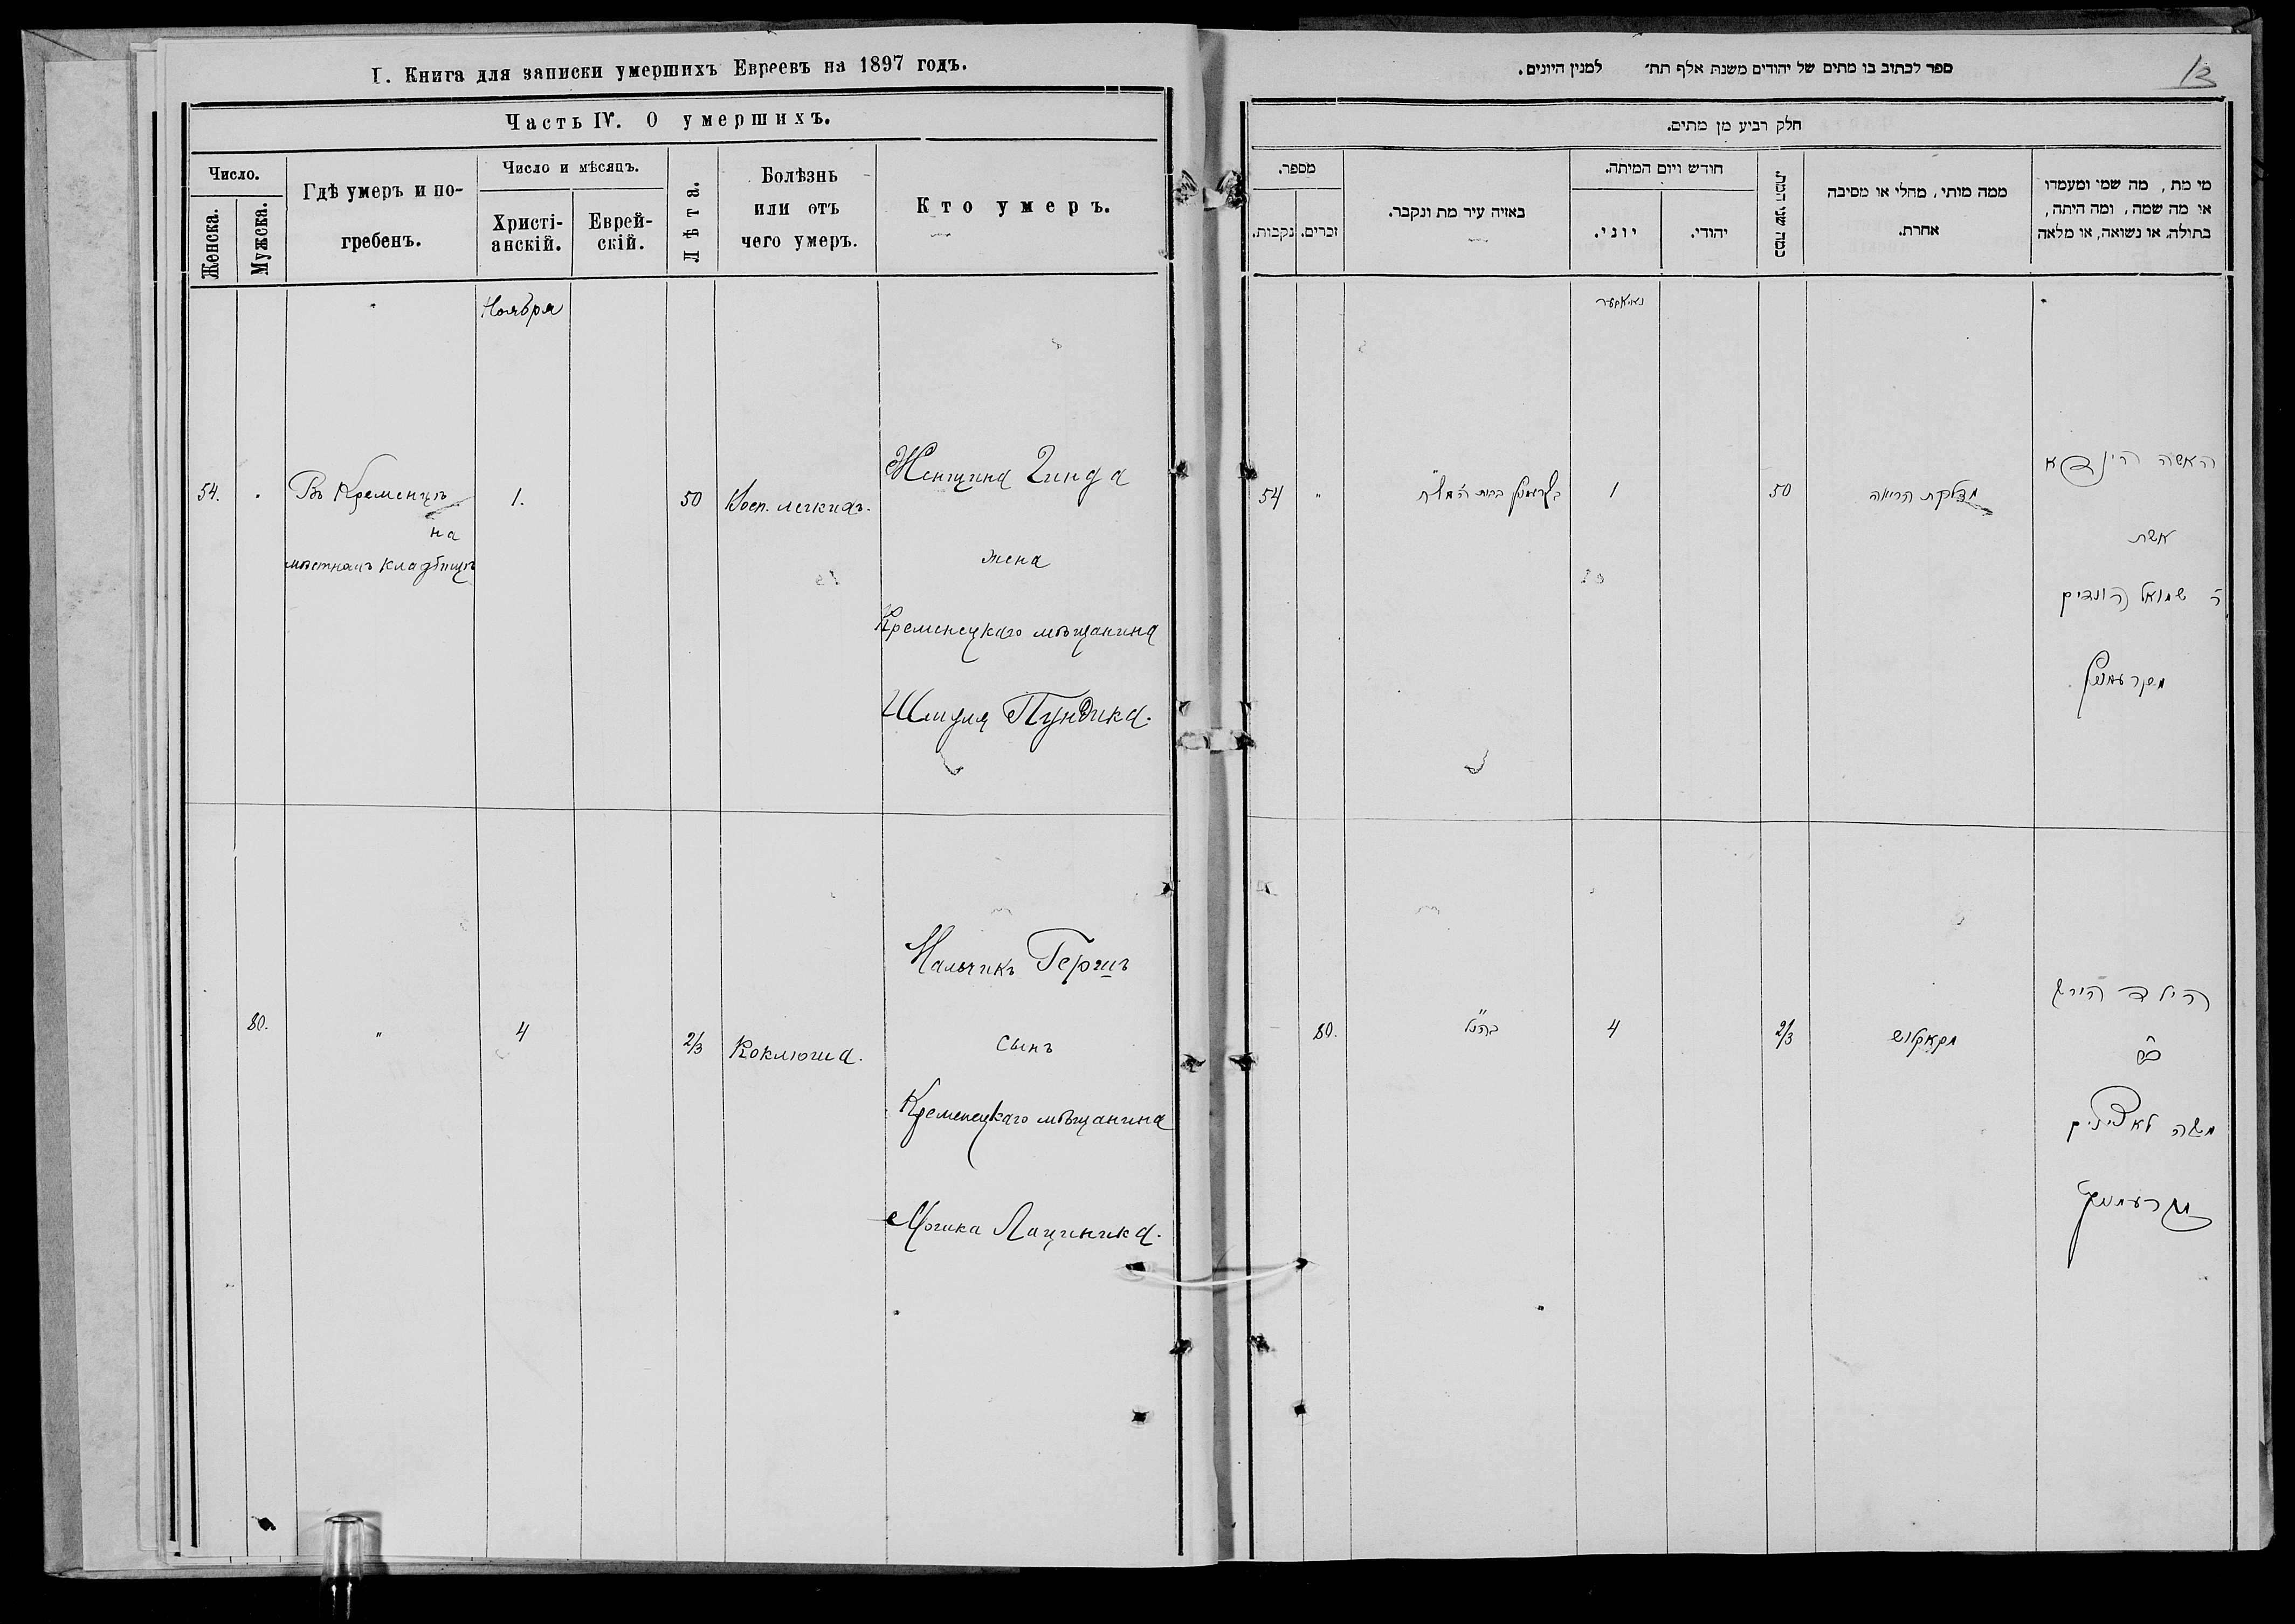 I. Книга для записки умершихъ Евреевъ на 1897 годъ.
Часть IV. О умершихъ.
Число.
Женска.
Мужска.
Гдѣ умеръ и по-
гребенъ.
Число и мѣсяцъ.
Христі-
анскій.
Еврей-
скій.
Лѣта.
Болѣзнь
или отъ
чего умеръ.
Кто умеръ.
Ноября
54.
Въ Кременцѣ
на
мѣстномъ кладбищѣ
1.
50
Восп. легкихъ.
Женщина Гинда
жена
Кременецкаго мѣщанина
Шмуля Пундика.
80.
"
4
2/3
Коклюша.
Мальчикъ Гершъ
сынъ
Кременецкаго мѣщанина
Мошка Лациника.
ספר לכתוב בו מתים של יהודים משנת אלף תת׳ למנין היונים.
13
חלק רביע מן מתים.
מספר.
נקבות.
זכרים.
באזיה עיר מת ונקבר.
חודש ויום המיתה.
יוני.
יהודי.
כמה שני המת.
ממה מותי, מחלי או מסיבה
אחרת.
מי מת, מה שמי ומעמדו
או מה שמה, ומה היתה,
בתולה, או נשואה, או מלאה
נאיאבער
54
"
1
50
מדלקת הריאה
האשה הינדא
אשת
ר' שמואל פונדיק
מקרעמניץ
80.
כהנ"ל
4
2/3
מקאקלוש
הילד הירש
משה לאציניק
מקרעמניץ